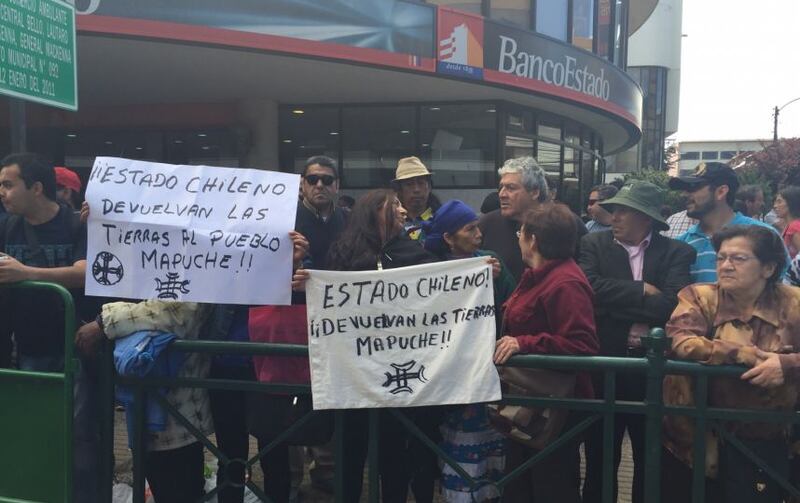 COMERCIO AMBULANTE
CENTRAL BELLO, LAUTARO
GENERAL MACKENNA
MUNICIPAL Nº 092
12 ENERO DEL 2011
BancoEstado
¡¡ESTADO CHILENO
DEVUELVAN LAS
TIERRAS AL PUEBLO
MAPUCHE!!
ESTADO CHILENO!
¡¡DEVUELVAN LAS TIERRAS
MAPUCHE!!